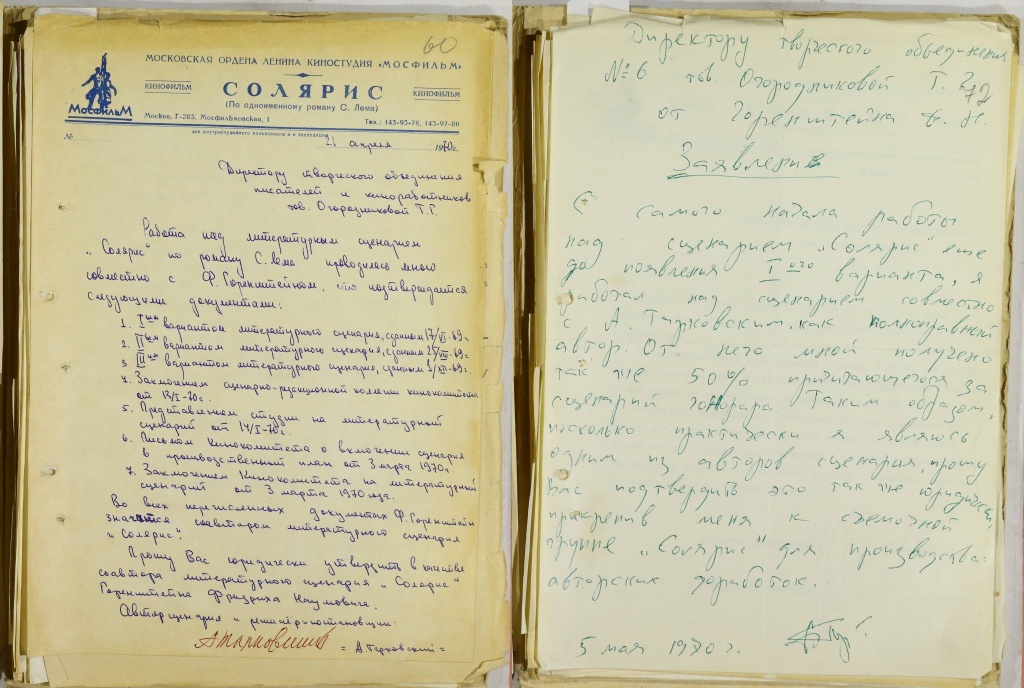 60
МОСКОВСКАЯ ОРДЕНА ЛЕНИНА КИНОСТУДИЯ «МОСФИЛЬМ»
КИНОФИЛЬМ
СОЛЯРИС
КИНОФИЛЬМ
(По одноименному роману С. Лема)
МосфильМ
Москва, Г-285, Мосфильмовская, 1
Тел.: 143-93-76, 143-97-80
для внутристудийного пользования и в экспедиции
№
21 апреля 1970г.
Директору творческого объединения
писателей и киноработников
тов. Огородниковой Т.Г.
Работа над литературным сценарием
„Солярис" по роману С. Лема проводилась мною
совместно с Ф. Горенштейном, что подтверждается
следующими документами:
1. Iым вариантом литературного сценария, сданным 17/VI-69г
2. IIым вариантом литературного сценария, сданным
3 IIIим вариантом литературного сценария, сданным 5/XII-69г
4. Заключением сценарно-редакционной коллегии кинокомитета
от 13/I-70г.
5. Представлением студии на литературный
сценарий от 14/I-70г.
6. Письмом Кинокомитета о включении сценария
в производственный план от 3 марта 1970г.
7. Заключением Кинокомитета на литературный
сценарий от 3 марта 1970 года.
Во всех перечисленных документах Ф. Горенштейн
значится соавтором литературного сценария
„Солярис".
Прошу Вас юридически утвердить в качестве
соавтора литературного сценария „Солярис"
Горенштейна Фридриха Наумовича.
Автор сценария и режиссер-постановщик:
АТарковский
= А. Тарковский =
Директору творческого объединения
№ 6 тов. Огородниковой Т. Г.
72
от Горенштейна Ф. Н.
Заявление
С самого начала работы
над сценарием „Солярис" еще
до появления Iого варианта, я
работал над сценарием совместно
с А. Тарковским, как полноправный
автор. От него мной получено
так же 50% причитающегося за
сценарий гонорара Таким образом,
поскольку практически я являюсь
одним из авторов сценария, прошу
Вас подтвердить это так же юридически,
прикрепив меня к съемочной
группе „Солярис" для производства
авторских доработок.
5 мая 1970 г.